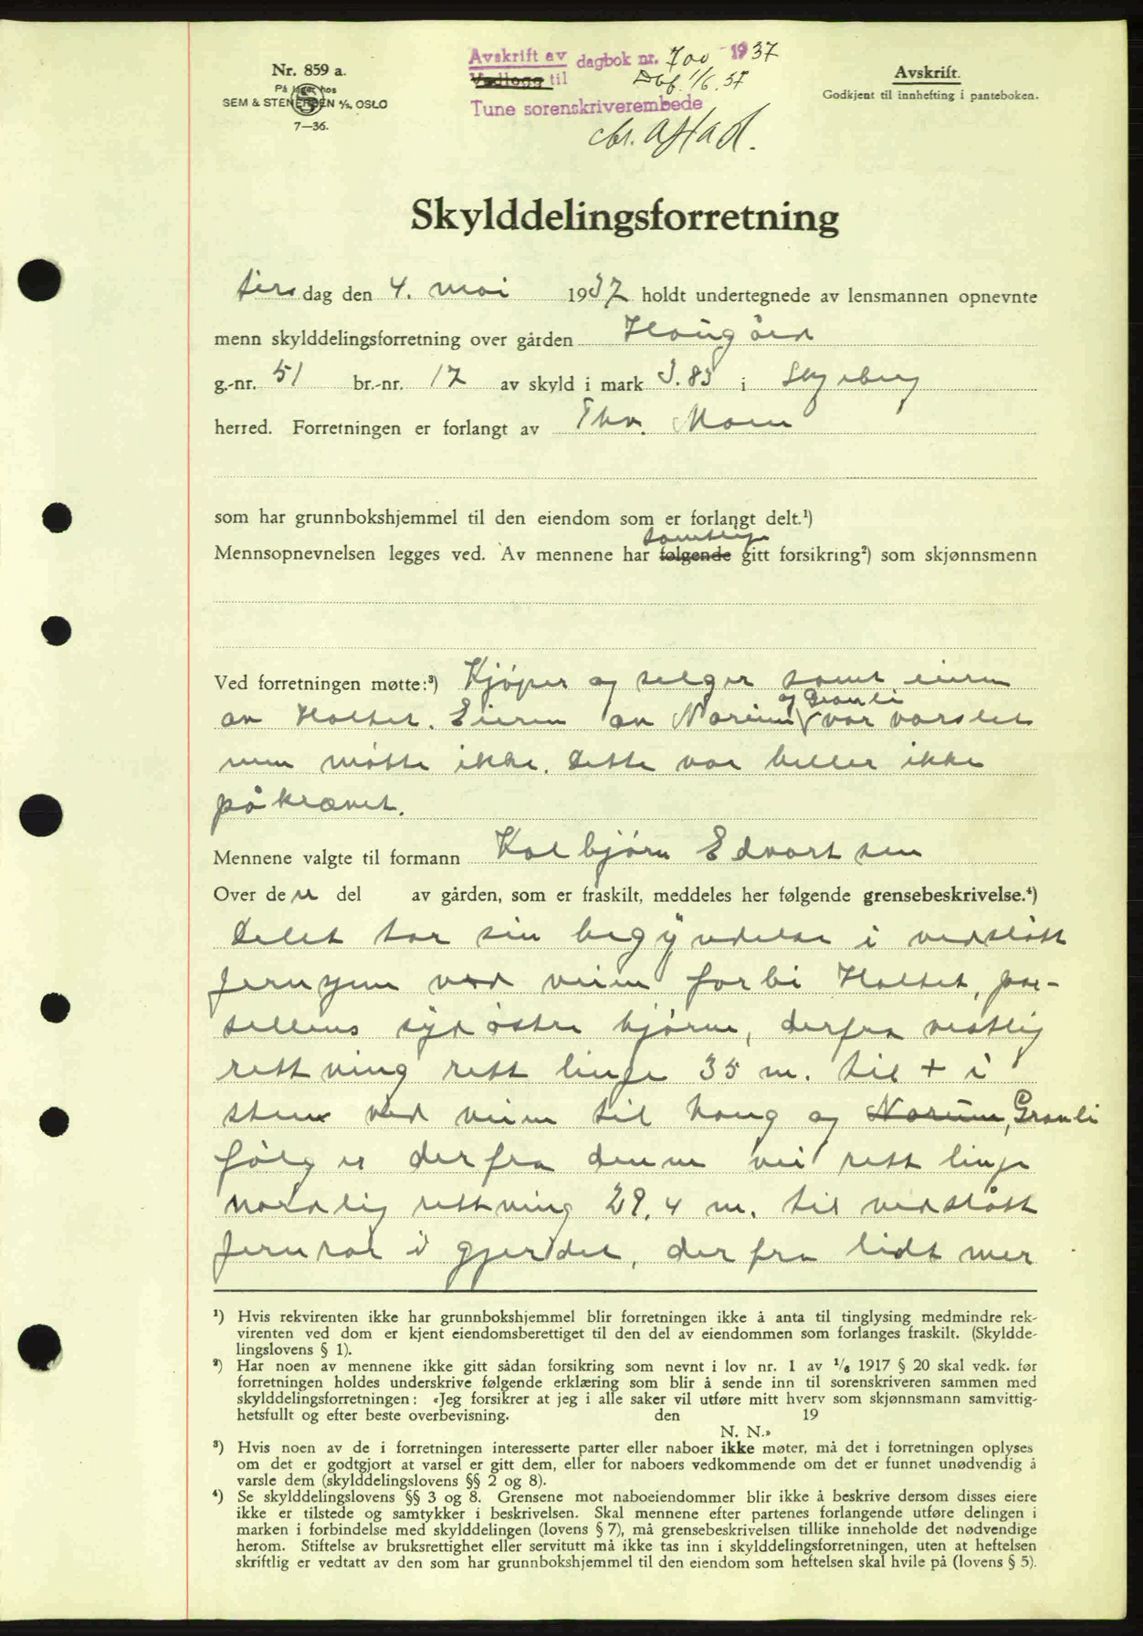 Nr. 859 a.
På lager hos
SEM & STENERSEN A/S, OSLO
7—36.
Avskrift av dagbok nr. 700 1937
Vedlegg til Dbf. 1/6. 37
Tune sorenskriverembede
Avskrift.
Godkjent til innhefting i panteboken.
Skylddelingsforretning
tirsdag den 4. mai 1937 holdt undertegnede av lensmannen opnevnte
menn skylddelingsforretning over gården Haugård
g.-nr. 51 br.-nr. 17 av skyld i mark 3.83 i Skjeberg
herred. Forretningen er forlangt av Thv. Moen
som har grunnbokshjemmel til den eiendom som er forlangt delt.¹)
samtlige
Mennsopnevnelsen legges ved. Av mennene har følgende gitt forsikring²) som skjønnsmenn
Ved forretningen møtte:³) Kjøper og selger samt eieren
og Granli
av Holtet. Eieren av Norum var varslet
men møtte ikke. Dette var heller ikke
påkrævet.
Mennene valgte til formann Kolbjørn Edvartsen
Over den del av gården, som er fraskilt, meddeles her følgende grensebeskrivelse.⁴)
Delet tar sin begyndelse i nedslått
jernrør ved veien forbi Holtet, par-
sellens sydøstre hjørne, derfra vestlig
rettning rett linje 35 m. til + i
sten ved veien til haug og Norum, Granli
følger derfra denne vei rett linje
nordlig rettning 29,4 m. til nedslått
jernrør i gjerdet, derfra lidt mer
¹) Hvis rekvirenten ikke har grunnbokshjemmel blir forretningen ikke å anta til tinglysing medmindre rek-
virenten ved dom er kjent eiendomsberettiget til den del av eiendommen som forlanges fraskilt. (Skyldde-
lingslovens § 1).
²) Har noen av mennene ikke gitt sådan forsikring som nevnt i lov nr. 1 av 1/6 1917 § 20 skal vedk. før
forretningen holdes underskrive følgende erklæring som blir å sende inn til sorenskriveren sammen med
skylddelingsforretningen: «Jeg forsikrer at jeg i alle saker vil utføre mitt hverv som skjønnsmann samvittig-
hetsfullt og efter beste overbevisning. den 19
N. N.»
³) Hvis noen av de i forretningen interesserte parter eller naboer ikke møter, må det i forretningen oplyses
om det er godtgjort at varsel er gitt dem, eller for naboers vedkommende om det er funnet unødvendig å
varsle dem (skylddelingslovens §§ 2 og 8).
⁴) Se skylddelingslovens §§ 3 og 8. Grensene mot naboeiendommer blir ikke å beskrive dersom disses eiere
ikke er tilstede og samtykker i beskrivelsen. Skal mennene efter partenes forlangende utføre delingen i
marken i forbindelse med skylddelingen (lovens § 7), må grensebeskrivelsen tillike inneholde det nødvendige
herom. Stiftelse av bruksrettighet eller servitutt må ikke tas inn i skylddelingsforretningen, uten at heftelsen
skriftlig er vedtatt av den som har grunnbokshjemmel til den eiendom som heftelsen skal hvile på (lovens § 5).